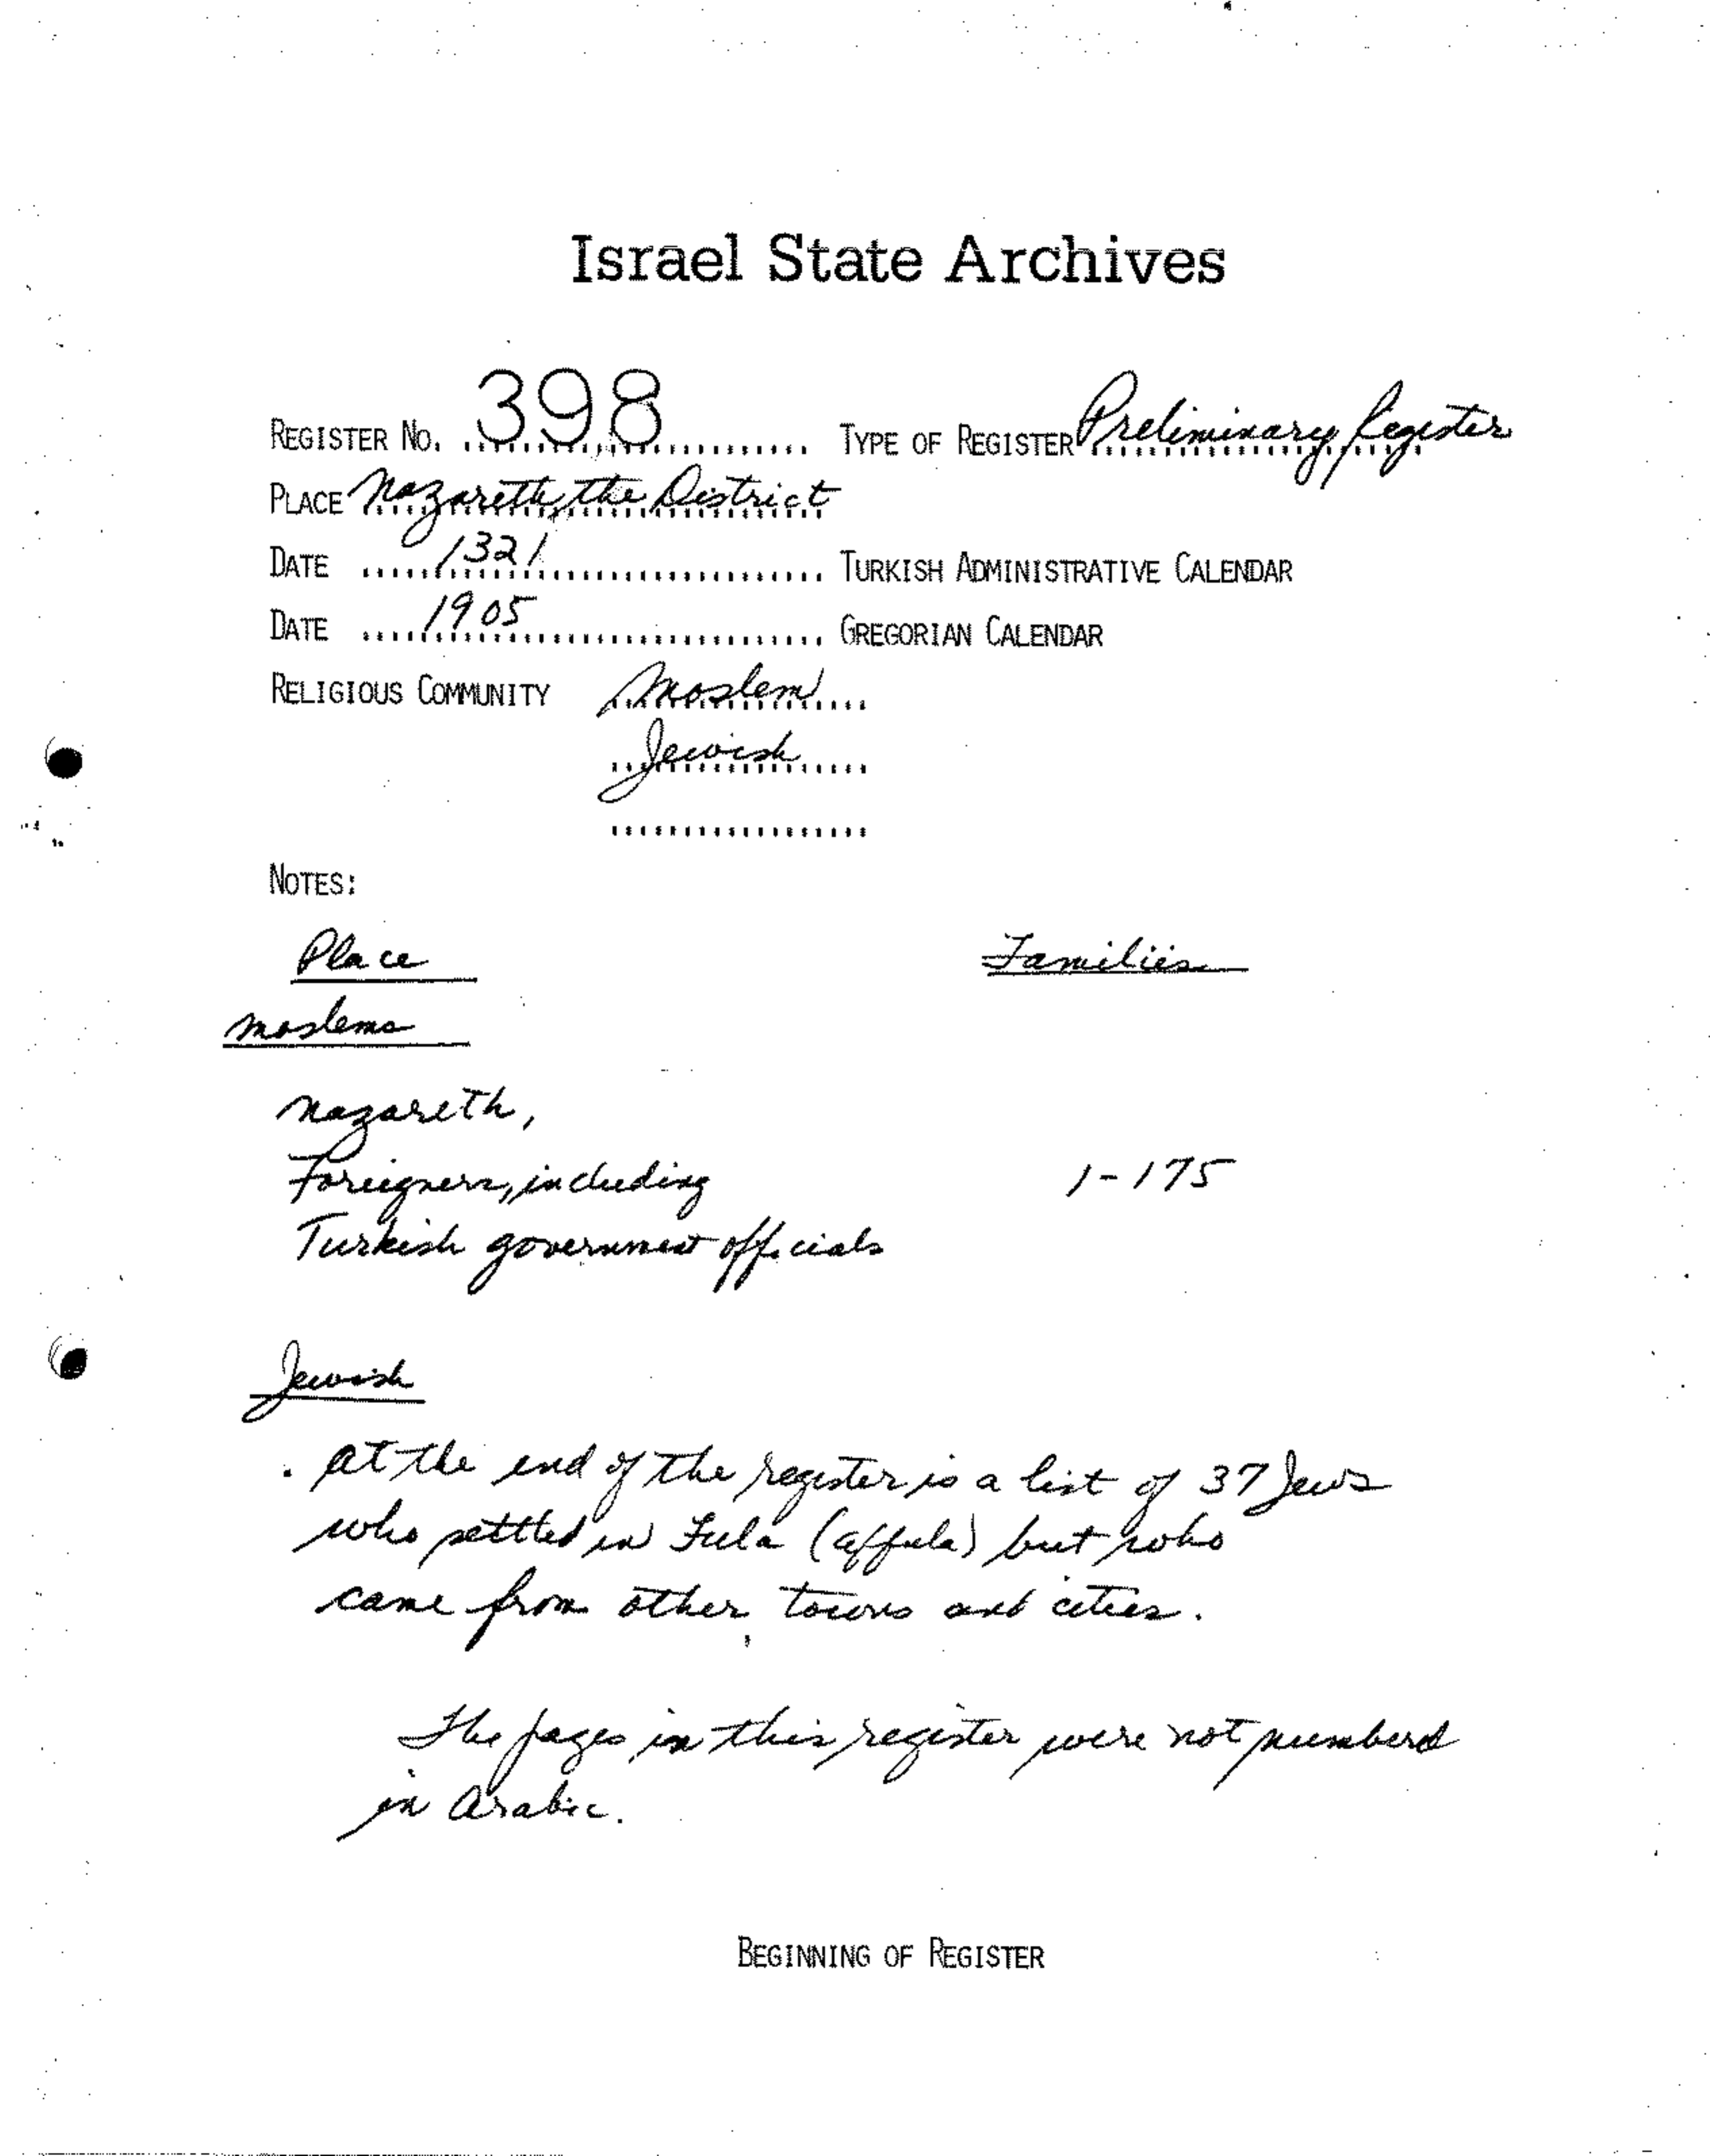 Israel State Archives
REGISTER NO. 398 TYPE OF REGISTER Preliminary Register
PLACE Nazareth, the District
DATE 1321 TURKISH ADMINISTRATIVE CALENDAR
DATE 1905 GREGORIAN CALENDAR
RELIGIOUS COMMUNITY Moslem
Jewish
NOTES:
Place Families
Moslems
Nazareth,
Foreigners, including 1-175
Turkish government officials
Jewish
. At the end of the register is a list of 37 Jews
who settled in Fula (Affula) but who
came from other towns and cities.
The pages in this register were not numberd
in Arabic.
BEGINNING OF REGISTER